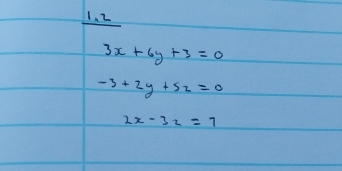 1.2
3x + 6y + 3 = 0
-3 + 2y + 5z = 0
2x - 3z = 7